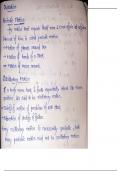 Periodic Motion
Any motion that repeats itself over & over again at regular
interval of time is called periodic motion.
→ Motion of planets around sun
→ Motion of hands of a clock
→ Motion of moon around
Oscillatory Motion
If a body moves back & forth repeatedly about its mean
position is said to be oscillatory motion.
motion of pendulum of wall clock
Vibration of string of guitar.
Every oscillatory motion is necessarily periodic, but
every periodic motion need not be oscillatory motion.